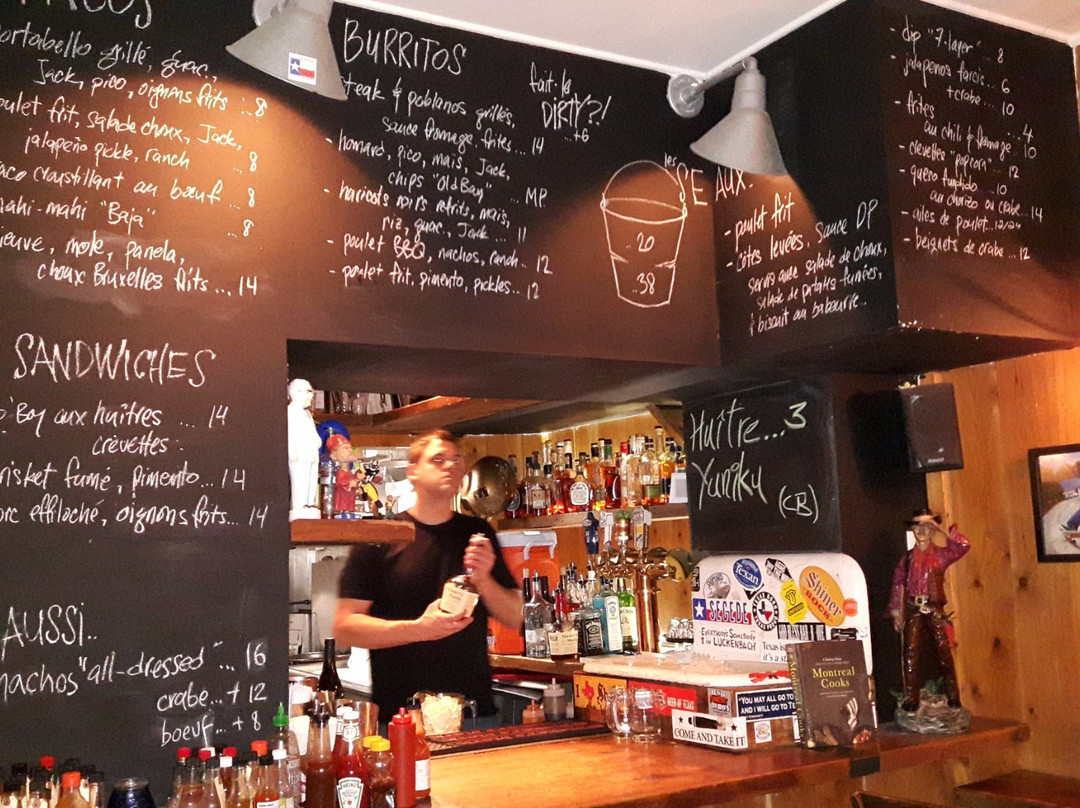 TACOS
portabello grillé, guac.,
Jack, pico, oignons frits .. 8
poulet frit, salade choux, Jack,
jalapeño pickle, ranch .. 8
taco croustillant au bœuf .. 8
mahi-mahi "Baja" .. 8
mole, panela,
choux Bruxelles frits ... 14
SANDWICHES
Boy aux huîtres ... 14
crevettes :
brisket fumé, pimento... 14
porc effiloché, oignons frits... 14
AUSSI..
nachos "all-dressed" ... 16
crabe... + 12
boeuf.. + 8
BURRITOS
steak & poblanos grillés,
sauce fromage, frites... 14
- homard, pico, maïs, Jack,
chips "Old Bay" ... MP
- haricots noirs refrits, maïs,
riz, guac., Jack... 11
- poulet BBQ, nachos, ranch.. 12
- poulet frit, pimento, pickles.. 12
fait-le
DIRTY?!
..+6
les
SEAUX:
.. 20
.. 38
- poulet frit
- côtes levées, sauce DP
servis avec salade de choux,
salade de patates fumées,
& biscuit au babeurre..
- dip "7-layer" .. 8
- jalapeños farcis .. 6
+ crabe .. 10
- frites ... 4
au chili & fromage .. 10
- crevettes "popcorn" .. 12
- queso fundido .. 10
au chorizo ou crabe.. 14
- ailes de poulet..
- beignets de crabe .. 12
Huître...3
Yuniku
(CB)
Texan
Shiner
BOCK
SEGEDE
EVERYBODY'S SOMEBODY
IN LUCKENBACH
Texas is
it's a st
Montreal
Cooks
BEER OF TEXAS
"YOU MAY ALL GO TO
AND I WILL GO TO TE
COME AND TAKE IT
HEINZ